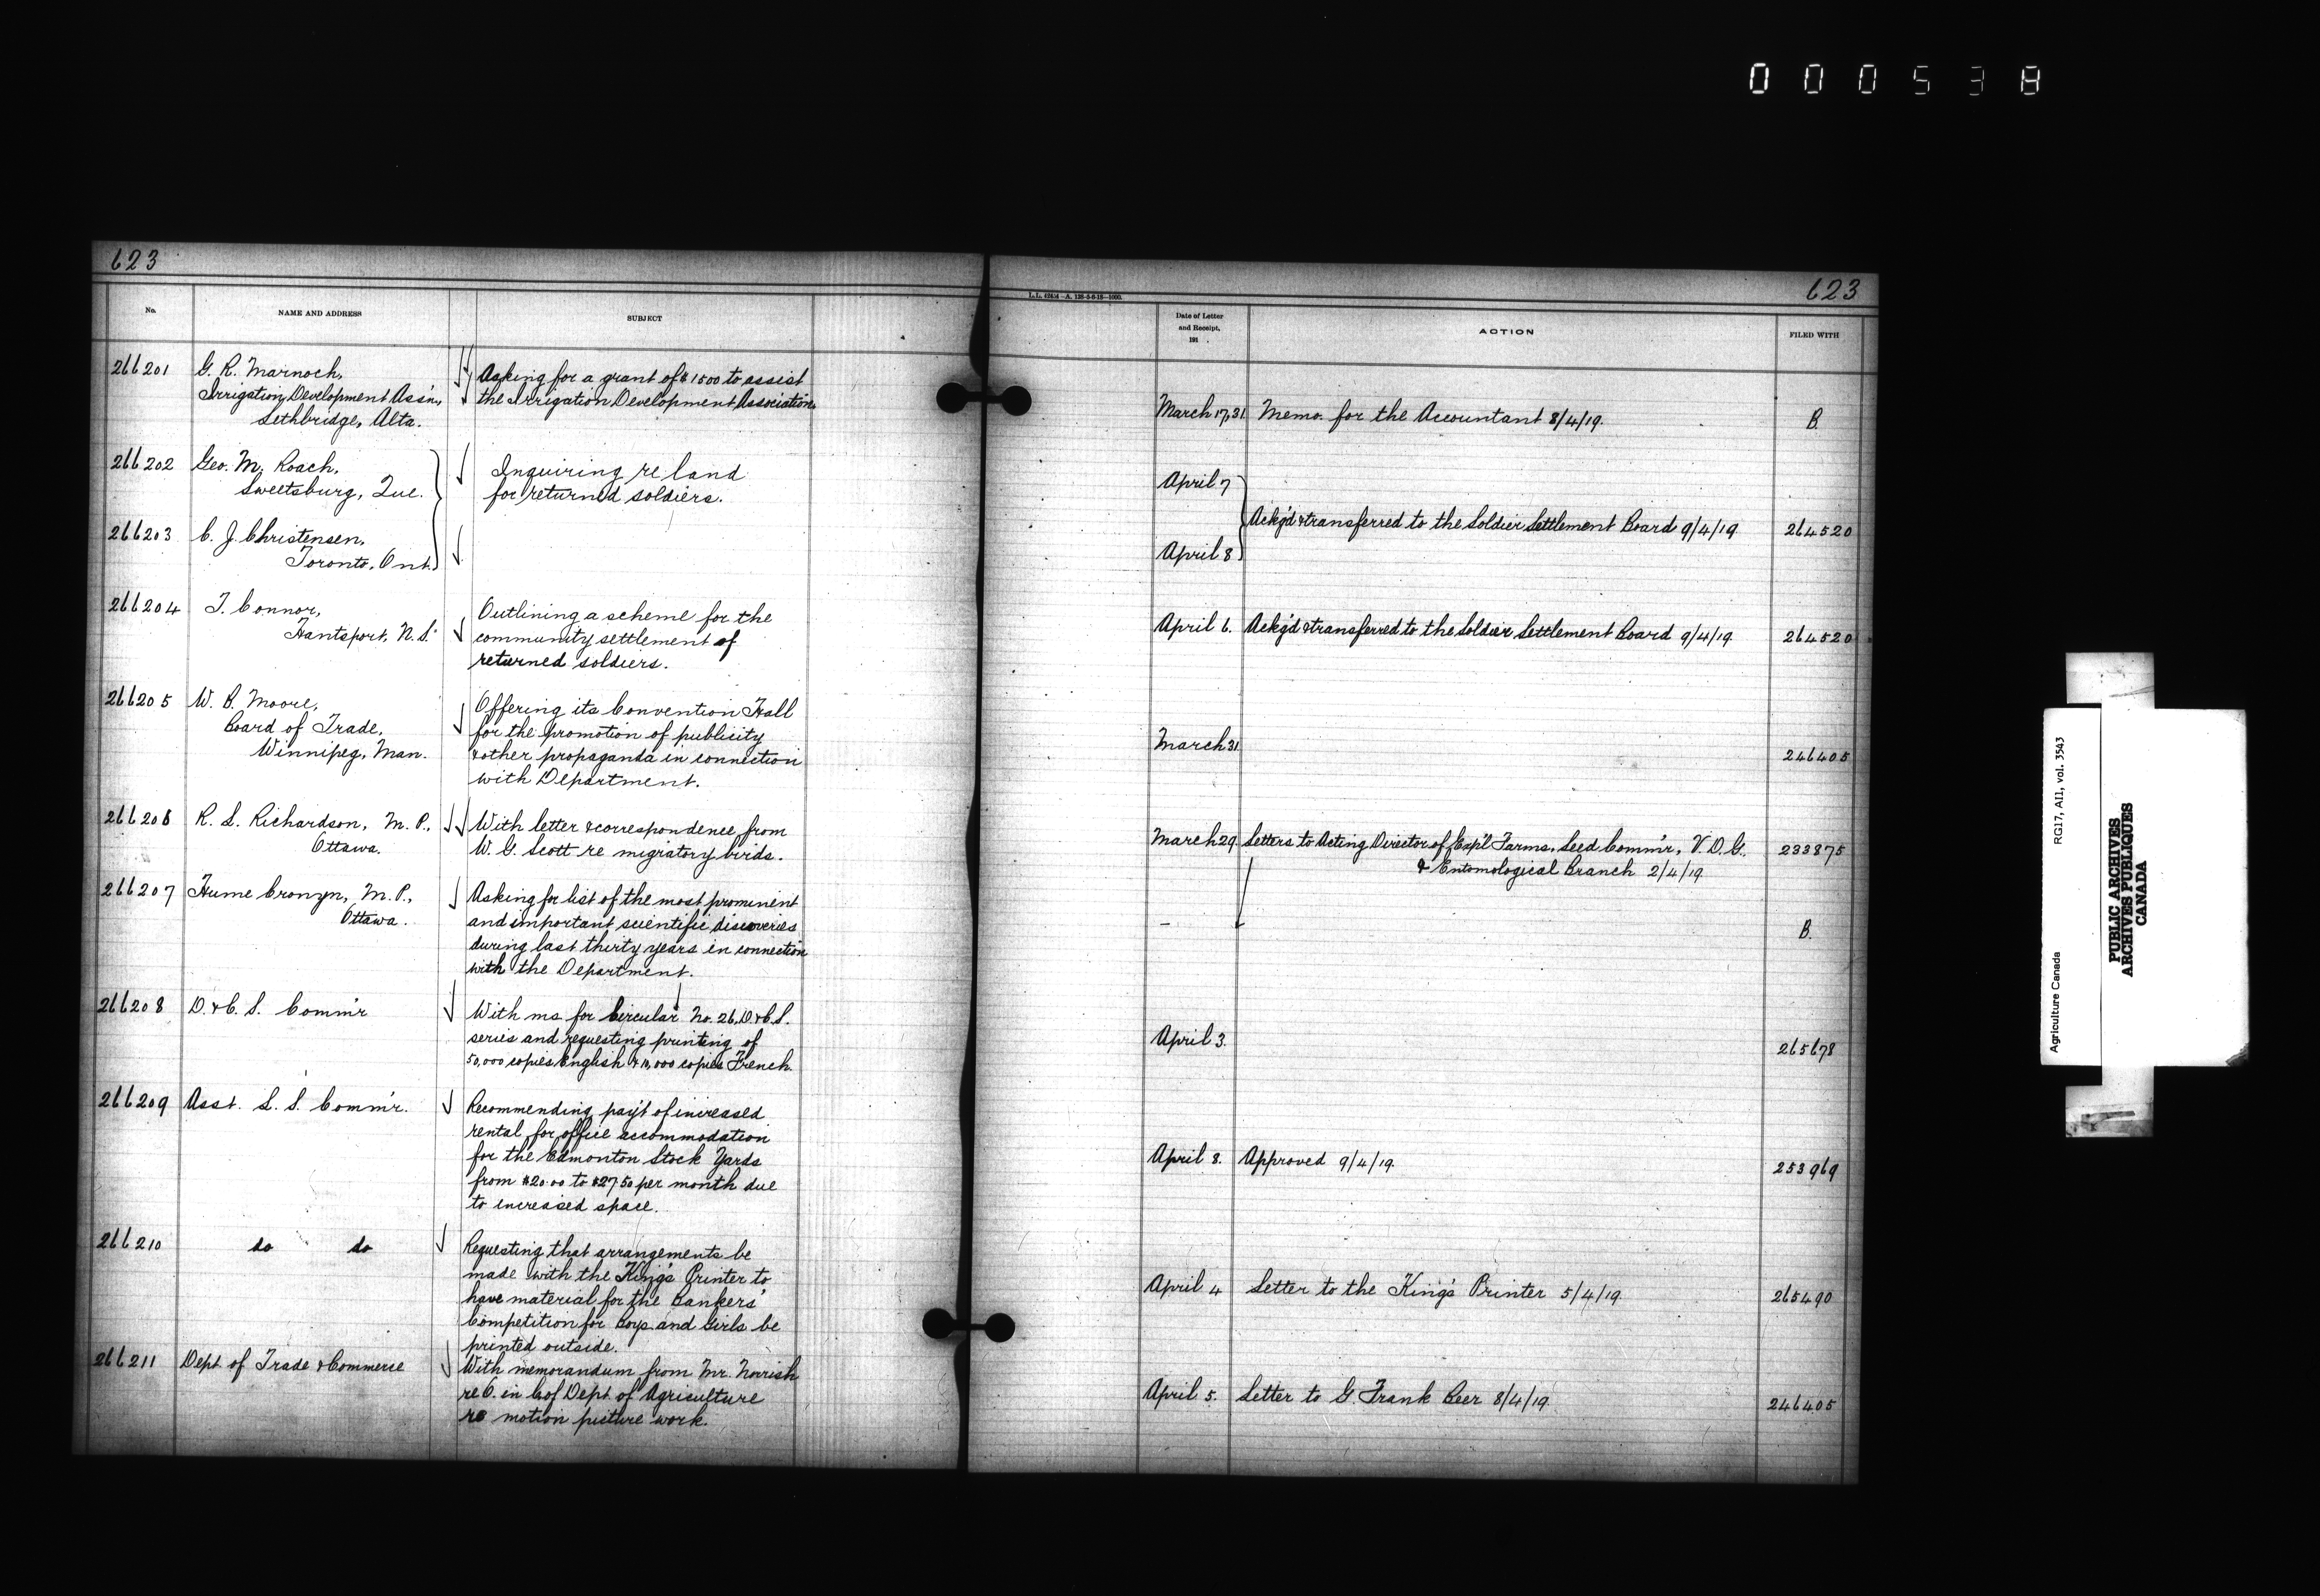 000538
623
No.
NAME AND ADDRESS
SUBJECT
266201
G. R. Marnoch,
Irrigation Development Ass'n,
Lethbridge, Alta.
Asking for a grant of $1500 to assist
the Irrigation Development Association.
266202
Geo. M. Roach,
Sweetsburg, Que.
Inquiring re land
for returned soldiers.
266203
C. J. Christensen,
Toronto, Ont.
266204
T. Connor,
Hantsport, N.S.
Outlining a scheme for the
community settlement of
returned soldiers.
266205
W. B. Moore,
Board of Trade,
Winnipeg, Man.
Offering its Convention Hall
for the promotion of publicity
& other propaganda in connection
with Department.
266206
R. L. Richardson, M.P.,
Ottawa.
With letter & correspondence from
W. G. Scott re migratory birds.
266207
Hume Cronyn, M.P.,
Ottawa.
Asking for list of the most prominent
and important scientific discoveries
during last thirty years in connection
with the Department.
266208
D. & C. S. Comm'r
With ms for Circular No. 26, D. & C. S.
series and requesting printing of
50,000 copies English & 10,000 copies French.
266209
Asst. L. S. Comm'r.
Recommending pay't of increased
rental for office accommodation
for the Edmonton Stock Yards
from $20.00 to $27.50 per month due
to increased space.
266210
do do
Requesting that arrangements be
made with the King's Printer to
have material for the Bankers'
Competition for Boys and Girls be
printed outside.
266211
Dept. of Trade & Commerce
With memorandum from Mr. Norrish
re O. in C. of Dept. of Agriculture
re motion picture work.
623
Date of Letter
and Receipt,
191 .
ACTION
FILED WITH
March 17, 31. Memo. for the Accountant 8/4/19. B.
April 7
Ackg'd & transferred to the Soldier Settlement Board 9/4/19. 264520
April 8
April 6. Ackg'd & transferred to the Soldier Settlement Board 9/4/19. 264520
March 31. 246405
March 29. Letters to Acting Director of Exp'l Farms, Seed Comm'r, V. D. G., 233875
& Entomological Branch 2/4/19.
– B.
April 3. 265678
April 8. Approved 9/4/19. 253969
April 4 Letter to the King's Printer 5/4/19 265490
April 5. Letter to G. Frank Beer 8/4/19. 246405
Agriculture Canada RG17, AI1, vol. 3543
PUBLIC ARCHIVES
ARCHIVES PUBLIQUES
CANADA